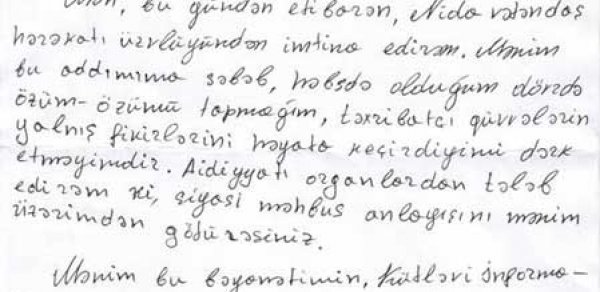 bu gündən etibarən, Nida vətəndaş
hərəkatı üzvlüyündən imtina edirəm. Mənim
bu addımıma səbəb, həbsdə olduğum dövrdə
özüm-özümü tapmağım, təxribatçı qüvvələrin
yalnış fikirlərini həyata keçirdiyimi dərk
etməyimdir. Aidiyyatı orqanlardan tələb
edirəm ki, siyasi məhbus anlayışını mənim
üzərimdən götürəsiniz.
Mənim bu bəyanətimin, Kütləvi İnforma-